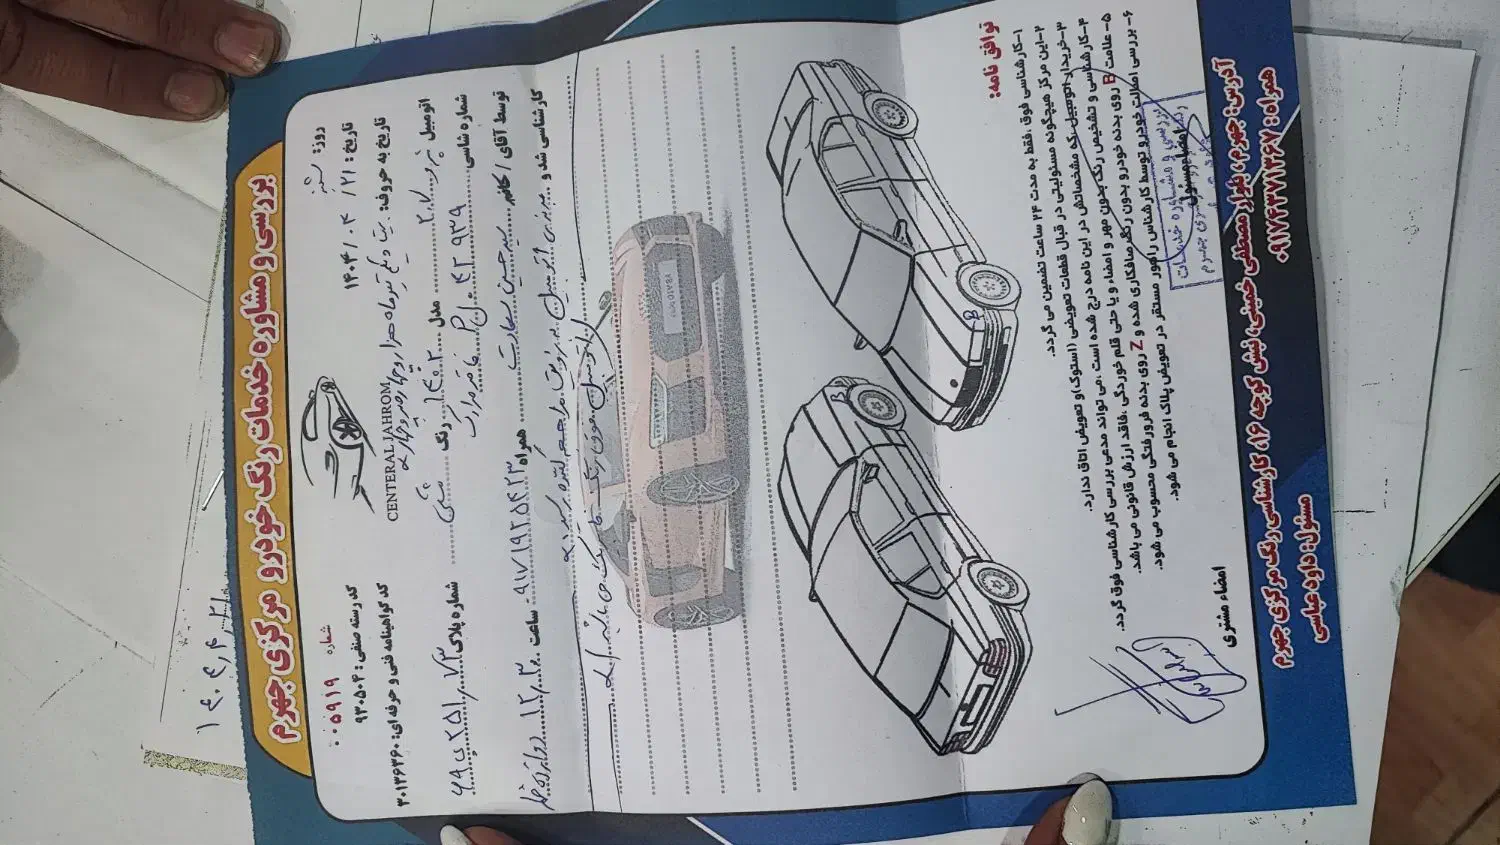 بررسی و مشاوره خدمات رنگ خودرو مرکزی جهرم
روز: شنبه
تاریخ: ۱۴۰۴/۰۴/۲۱
تاریخ به حروف: بیست و یکم تیرماه هزار و چهارصد و چهار
CENTERAL JAHROM
شماره ۰۰۵۹۱۹
کد رسته صنفی: ۹۳۰۵۰۲
کد گواهینامه فنی و حرفه ای: ۳۰۱۳۶۳۶۰
اتومبیل پژو ۲۰۷ مدل ۱۴۰۲ رنگ مشکی شماره پلاک
شماره شاسی ۴۲۹۳۹
توسط آقای / خانم سید حسین همراه ۰۹۱۷۱۹۲۵۴۲۳ ساعت ۱۲,۳۰
کارشناسی شد و
اتومبیل فوق رنگ می باشد
توافق نامه:
۱-کارشناسی فوق ،فقط به مدت ۲۴ ساعت تضمین می گردد.
۲-این مرکز هیچگونه مسئولیتی در قبال قطعات تعویضی (استوک) و تعویض اتاق ندارد.
۳-خریدار اتومبیل که مشخصاتش در این نامه درج شده است ،می تواند مدعی بررسی کارشناسی فوق گردد.
۴-کارشناسی و تشخیص رنگ بدون مهر و امضاء و یا حتی قلم خوردگی ،فاقد ارزش قانونی می باشد.
۵-علامت B روی بدنه خودرو بدون رنگ صافکاری شده و Z روی بدنه فرورفتگی محسوب می شود.
۶-بررسی اصالت خودرو توسط کارشناس راهور مستقر در تعویض پلاک انجام می شود.
امضاء مسئول
امضاء مشتری
بررسی و مشاوره خدمات
B
B
آدرس: جهرم، بلوار مصطفی خمینی، نبش کوچه ۱۶، کارشناسی رنگ مرکزی جهرم
همراه: ۰۹۱۷۴۳۷۱۳۶۷
مسئول: داوود عباسی
۱۴۰۴,۴,۲۱